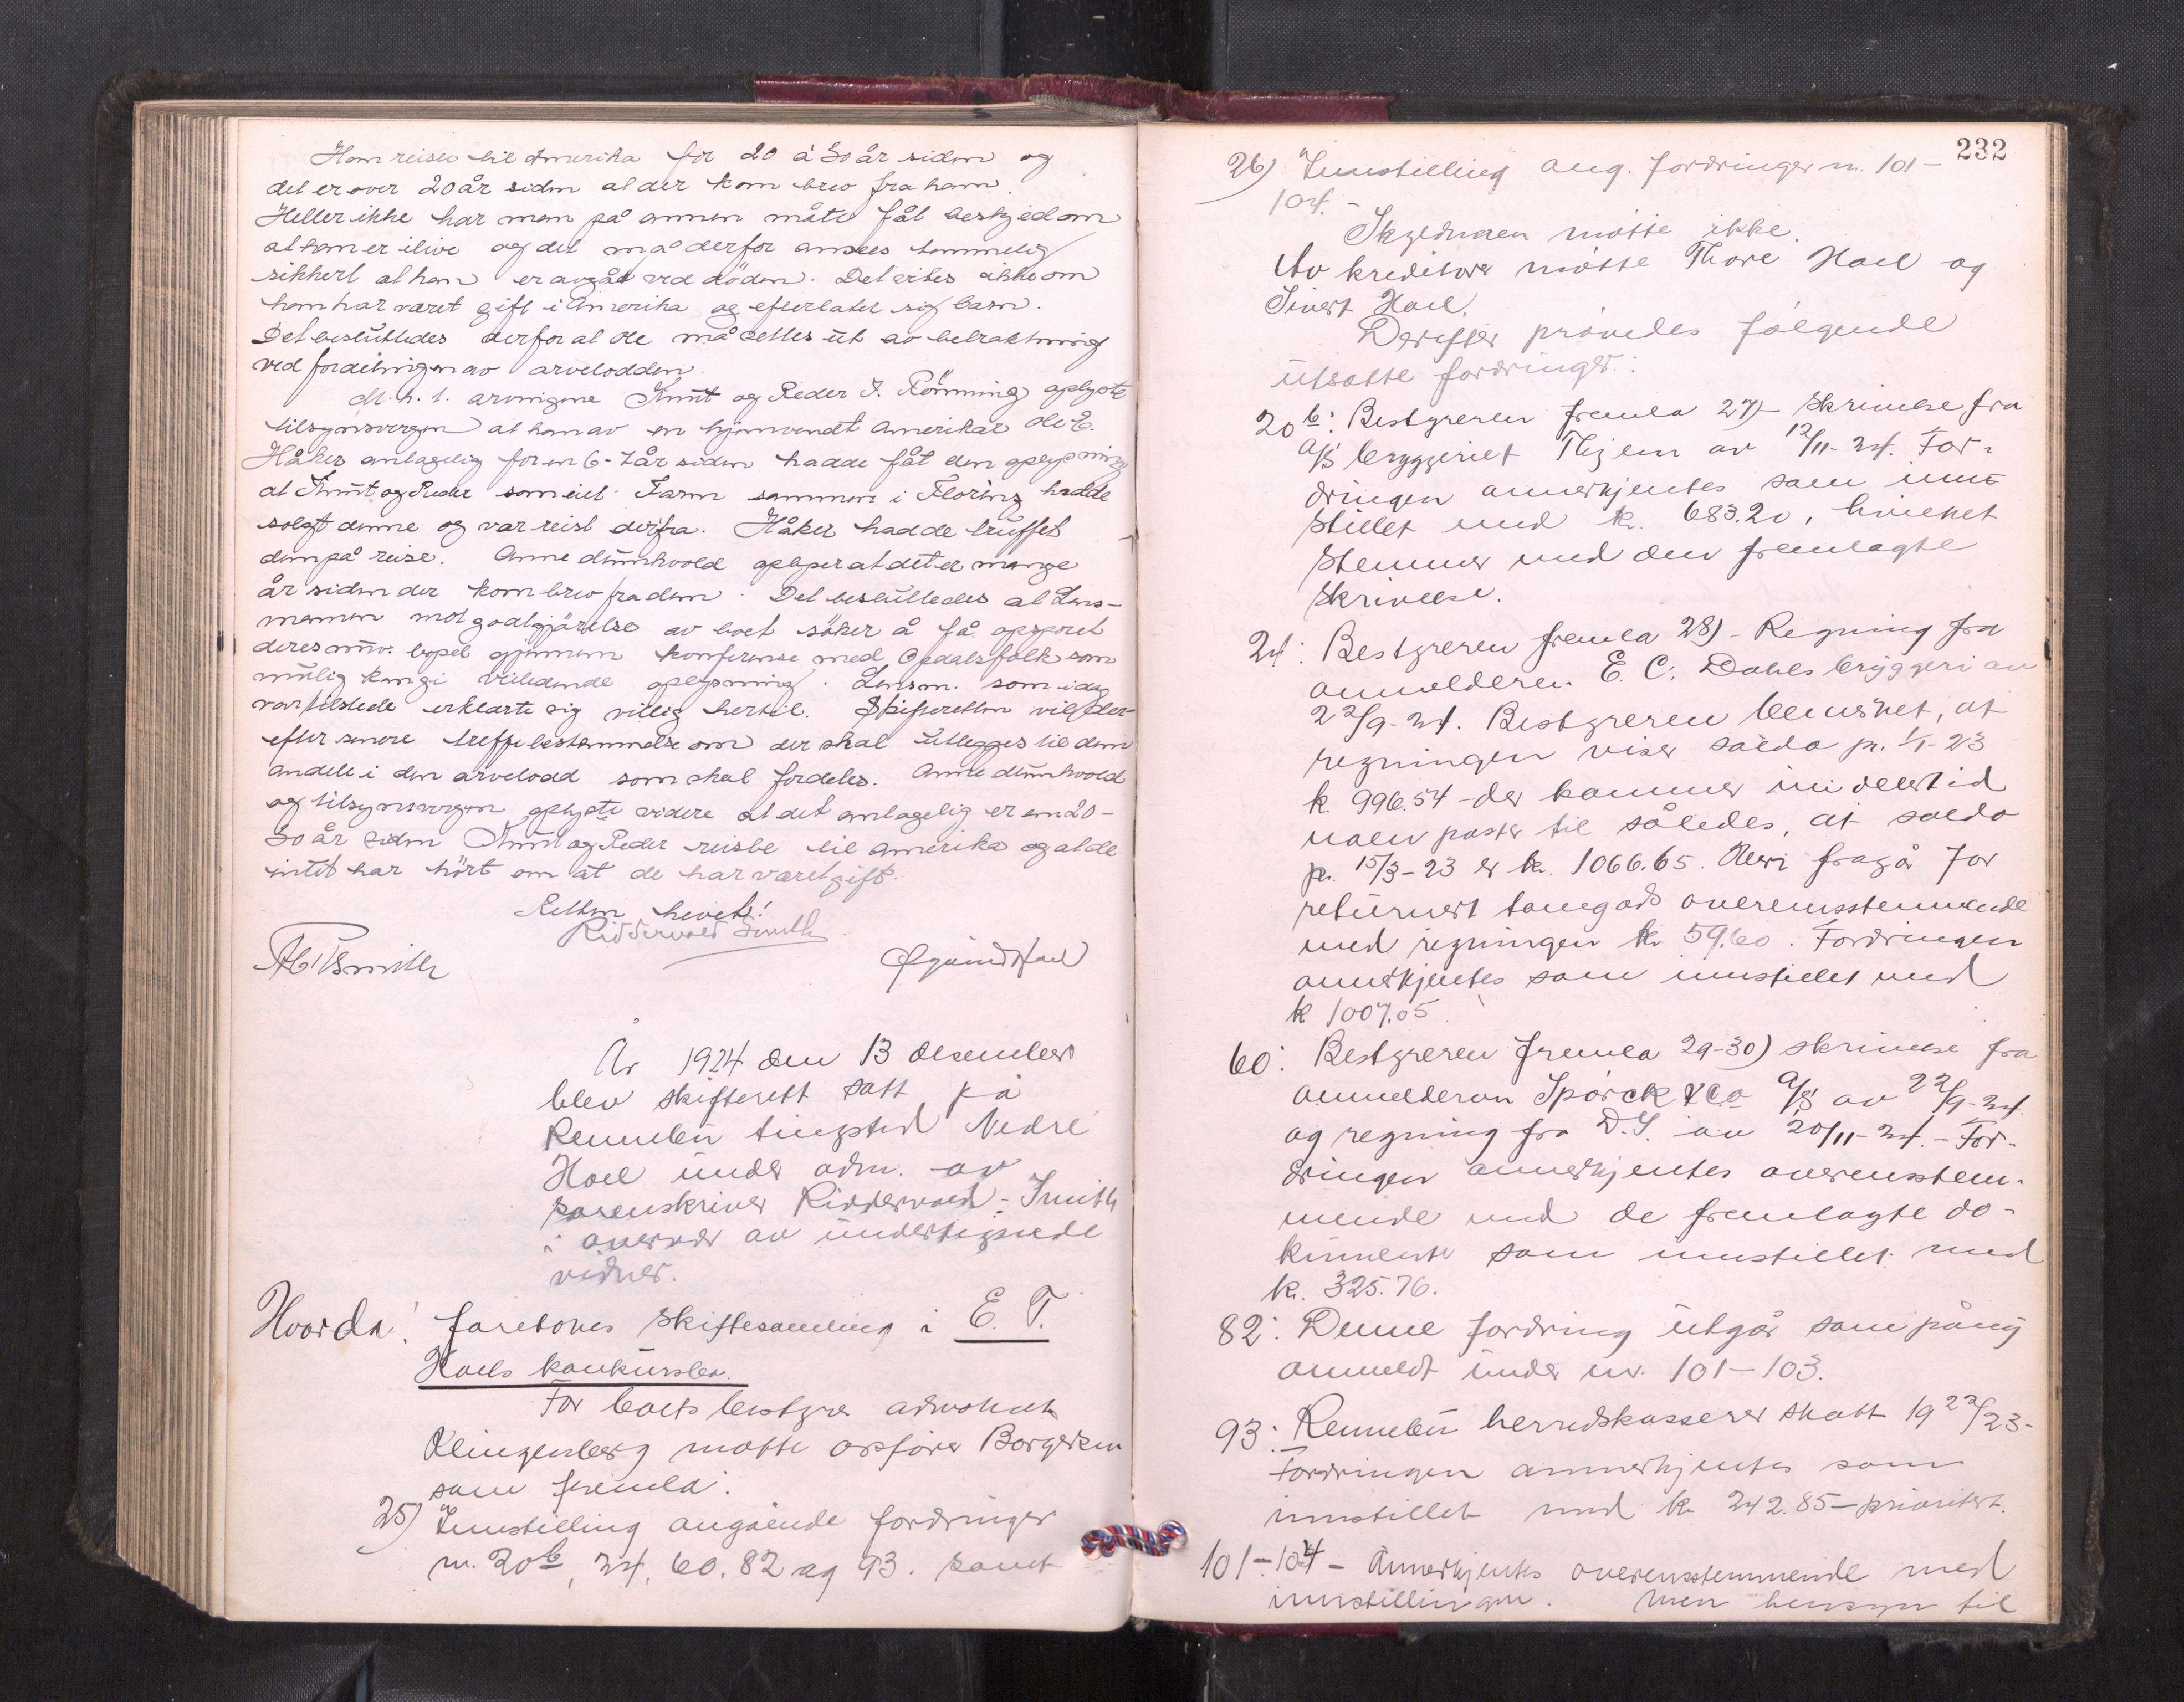 Han reiste til Amerika for 20 à 30 år siden og
det er over 20 år siden at der kom brev fra ham.
Heller ikke har man på annen måte fåt beskjed om
at han er ilive og det må derfor ansees temmelig
sikkert at han er avgåt ved döden. Det vites ikke om
han har været gift i Amerika og efterlater sig barn.
Det besluttedes derfor at de må settes ut av betraktning
ved fordelingen av arvelodden.
M.h.t. arvingene Knut og Peder J. Rönning oplyste
tilsynsvergen at han av en hjemvendt Amerikar Ole E.
Håker antagelig for en 6-7 år siden hadde fåt den oplysning
at Knut og Peder som eiet Farm sammen i hadde
solgt denne og var reist derfra. Håker hadde truffet
dem på reise. Anne oplyser at det er mange
år siden der kom brev fra dem. Det besluttedes at Lens-
mannen mot godtgjörelse av boet söker å få opsporet
deres nuv. bopel gjennem konferense med Opdalsfolk som
mulig kan gi veiledende oplysning. Lensm. som idag
var tilstede erklærte sig villig hertil. Skifteretten vil der-
efter senere treffe bestemmelse om der skal utlegges til dem
andele i den arvelodd som skal fordeles. Anne
og tilsynsvergen oplyste videre at det antagelig er en 20-
30 år siden Knut og Peder reiste til Amerika og at de
intet har hört om at de har været gift.
Retten hevet!
Ridderwold Smith
År 1924 den 13 desember
blev skifterett satt på
Rennebu tingsted Nedre
Hoel under adm. av
sorenskriver Ridderwold-Smith
i overvær av undertegnede
vidner.
Hvorda: foretoges skiftesamling i E. T.
Hoels konkursbo.
For boets bestyrer advokat
Klingenberg møtte opfører Borgersen
som fremla:
25) Innstilling angående fordringer
nr. 20b, 24, 60, 82 og 93. samt
232
26) Innstilling ang. fordringer nr. 101-
104.
Skyldneren møtte ikke.
Av kreditorer møtte Thore Hoel og
Sivert Hoel.
Derefter prövedes følgende
utsatte fordringer:
20b: Bestyreren fremla 27) skrivelse fra
A/S bryggeriet Thjem av 12/11-24. For-
dringen annerkjentes som inn-
stillet med kr. 683.20, hvilket
stemmer med den fremlagte
skrivelse.
24: Bestyreren fremla 28) - Regning fra
anmelderen E. C. Dahls bryggeri av
22/9-24. Bestyreren bemerket, at
regningen viser saldo pr. 1/1-23
k. 996.54 - der kommer imidlertid
noen poster til således, at saldo
pr. 15/3-23 er kr. 1066.65. Heri fragår for
returnert tomgods overensstemmende
med regningen kr 59.60. Fordringen
annerkjentes som innstillet med
k 1007.05.
60: Bestyreren fremla 29-30) skrivelse fra
anmelderen Spörck & Co A/S av 22/9-24
og regning fra D.S. av 20/11-24. - For-
dringen annerkjentes overensstem-
mende med de fremlagte do-
kumenter som innstillet med
kr. 325.76.
82: Denne fordring utgår som påny
anmeldt under nr. 101-103.
93: Rennebu herredskasserer skatt 1922/23-
Fordringen annerkjentes som
innstillet med kr. 242.85 - prioritert.
101-104 - Annerkjentes overensstemmende med
innstillingen. Men hensyn til